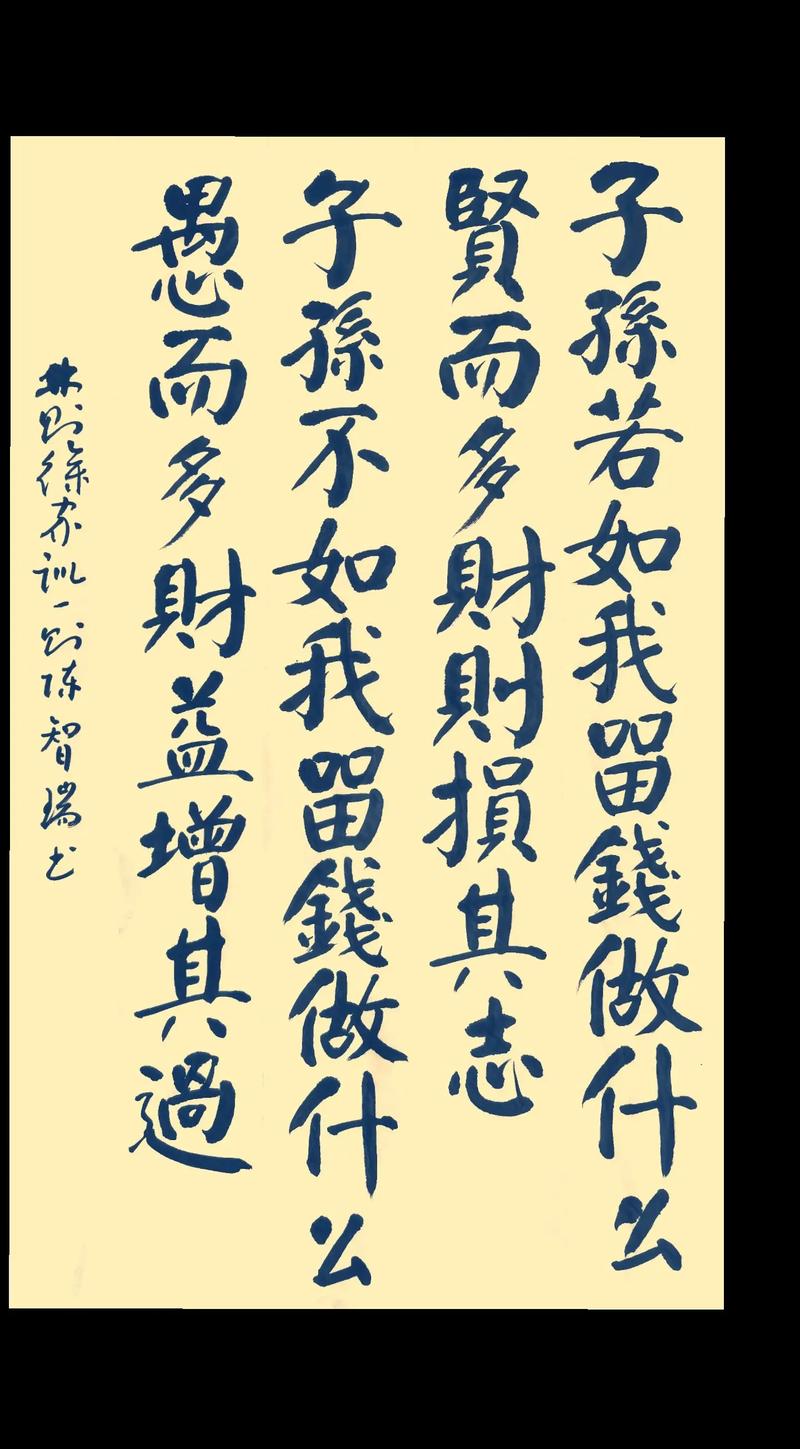 子孫若如我留錢做什么
賢而多財則損其志
子孫不如我留錢做什么
愚而多財益增其過
林则徐家训一则陈智瑞书